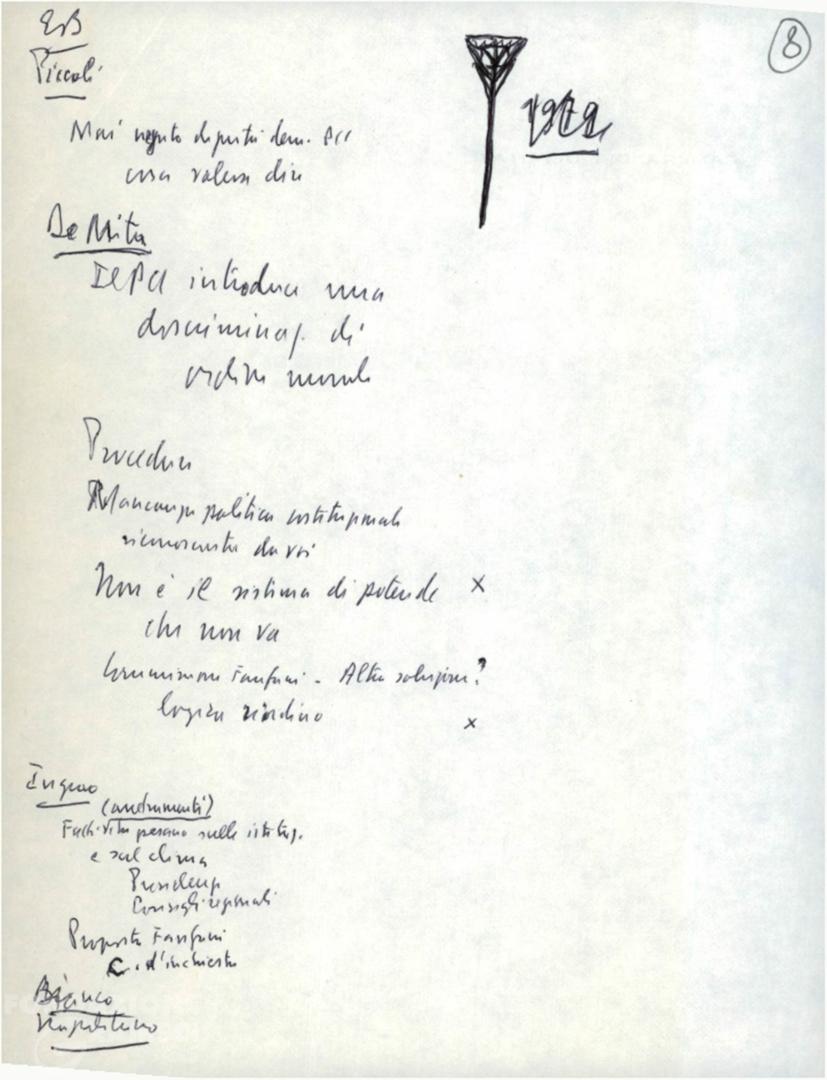 8
EB
Piccoli
1979
Mai negato di partiti dem. PCI
cosa voleva dire
De Mita
Il PCI introduce una
discriminaz. di
ordine morale
Procedure
Mancanza politica istituzionale
riconosciuta da voi
Non è il sistema di potere x
che non va
Commissione Fanfani - Altre soluzioni?
logica riordino x
Ingrao
(andamenti)
Fatti-vita pesano sulle istituz.
e sul clima
Presidenza
Consigli regionali
Proposta Fanfani
C. d'inchiesta
Bianco
Napolitano